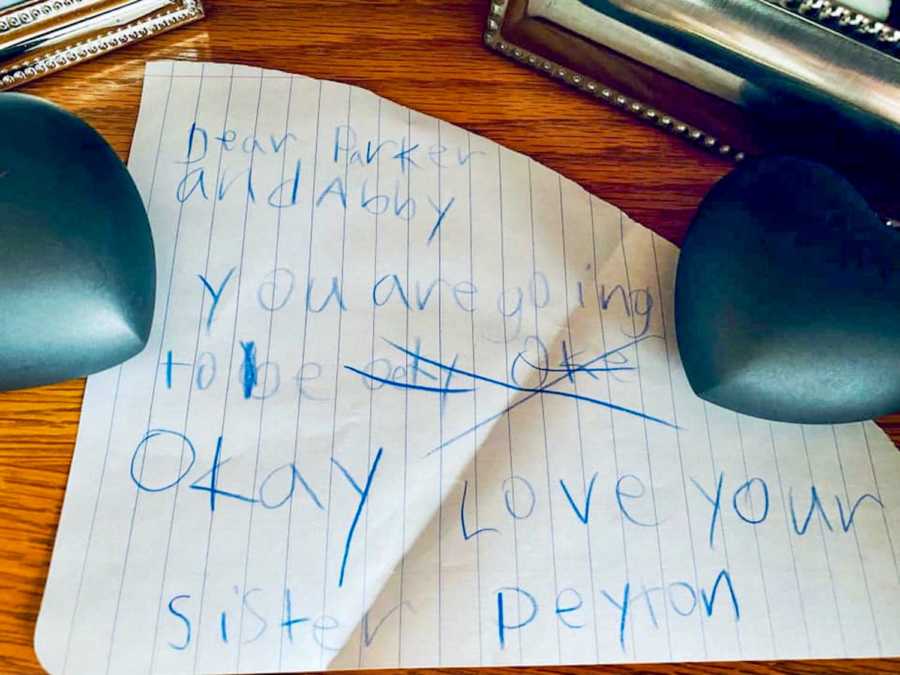 Dear Parker
and Abby
You are going
to be
Okay Love your
sister peyton